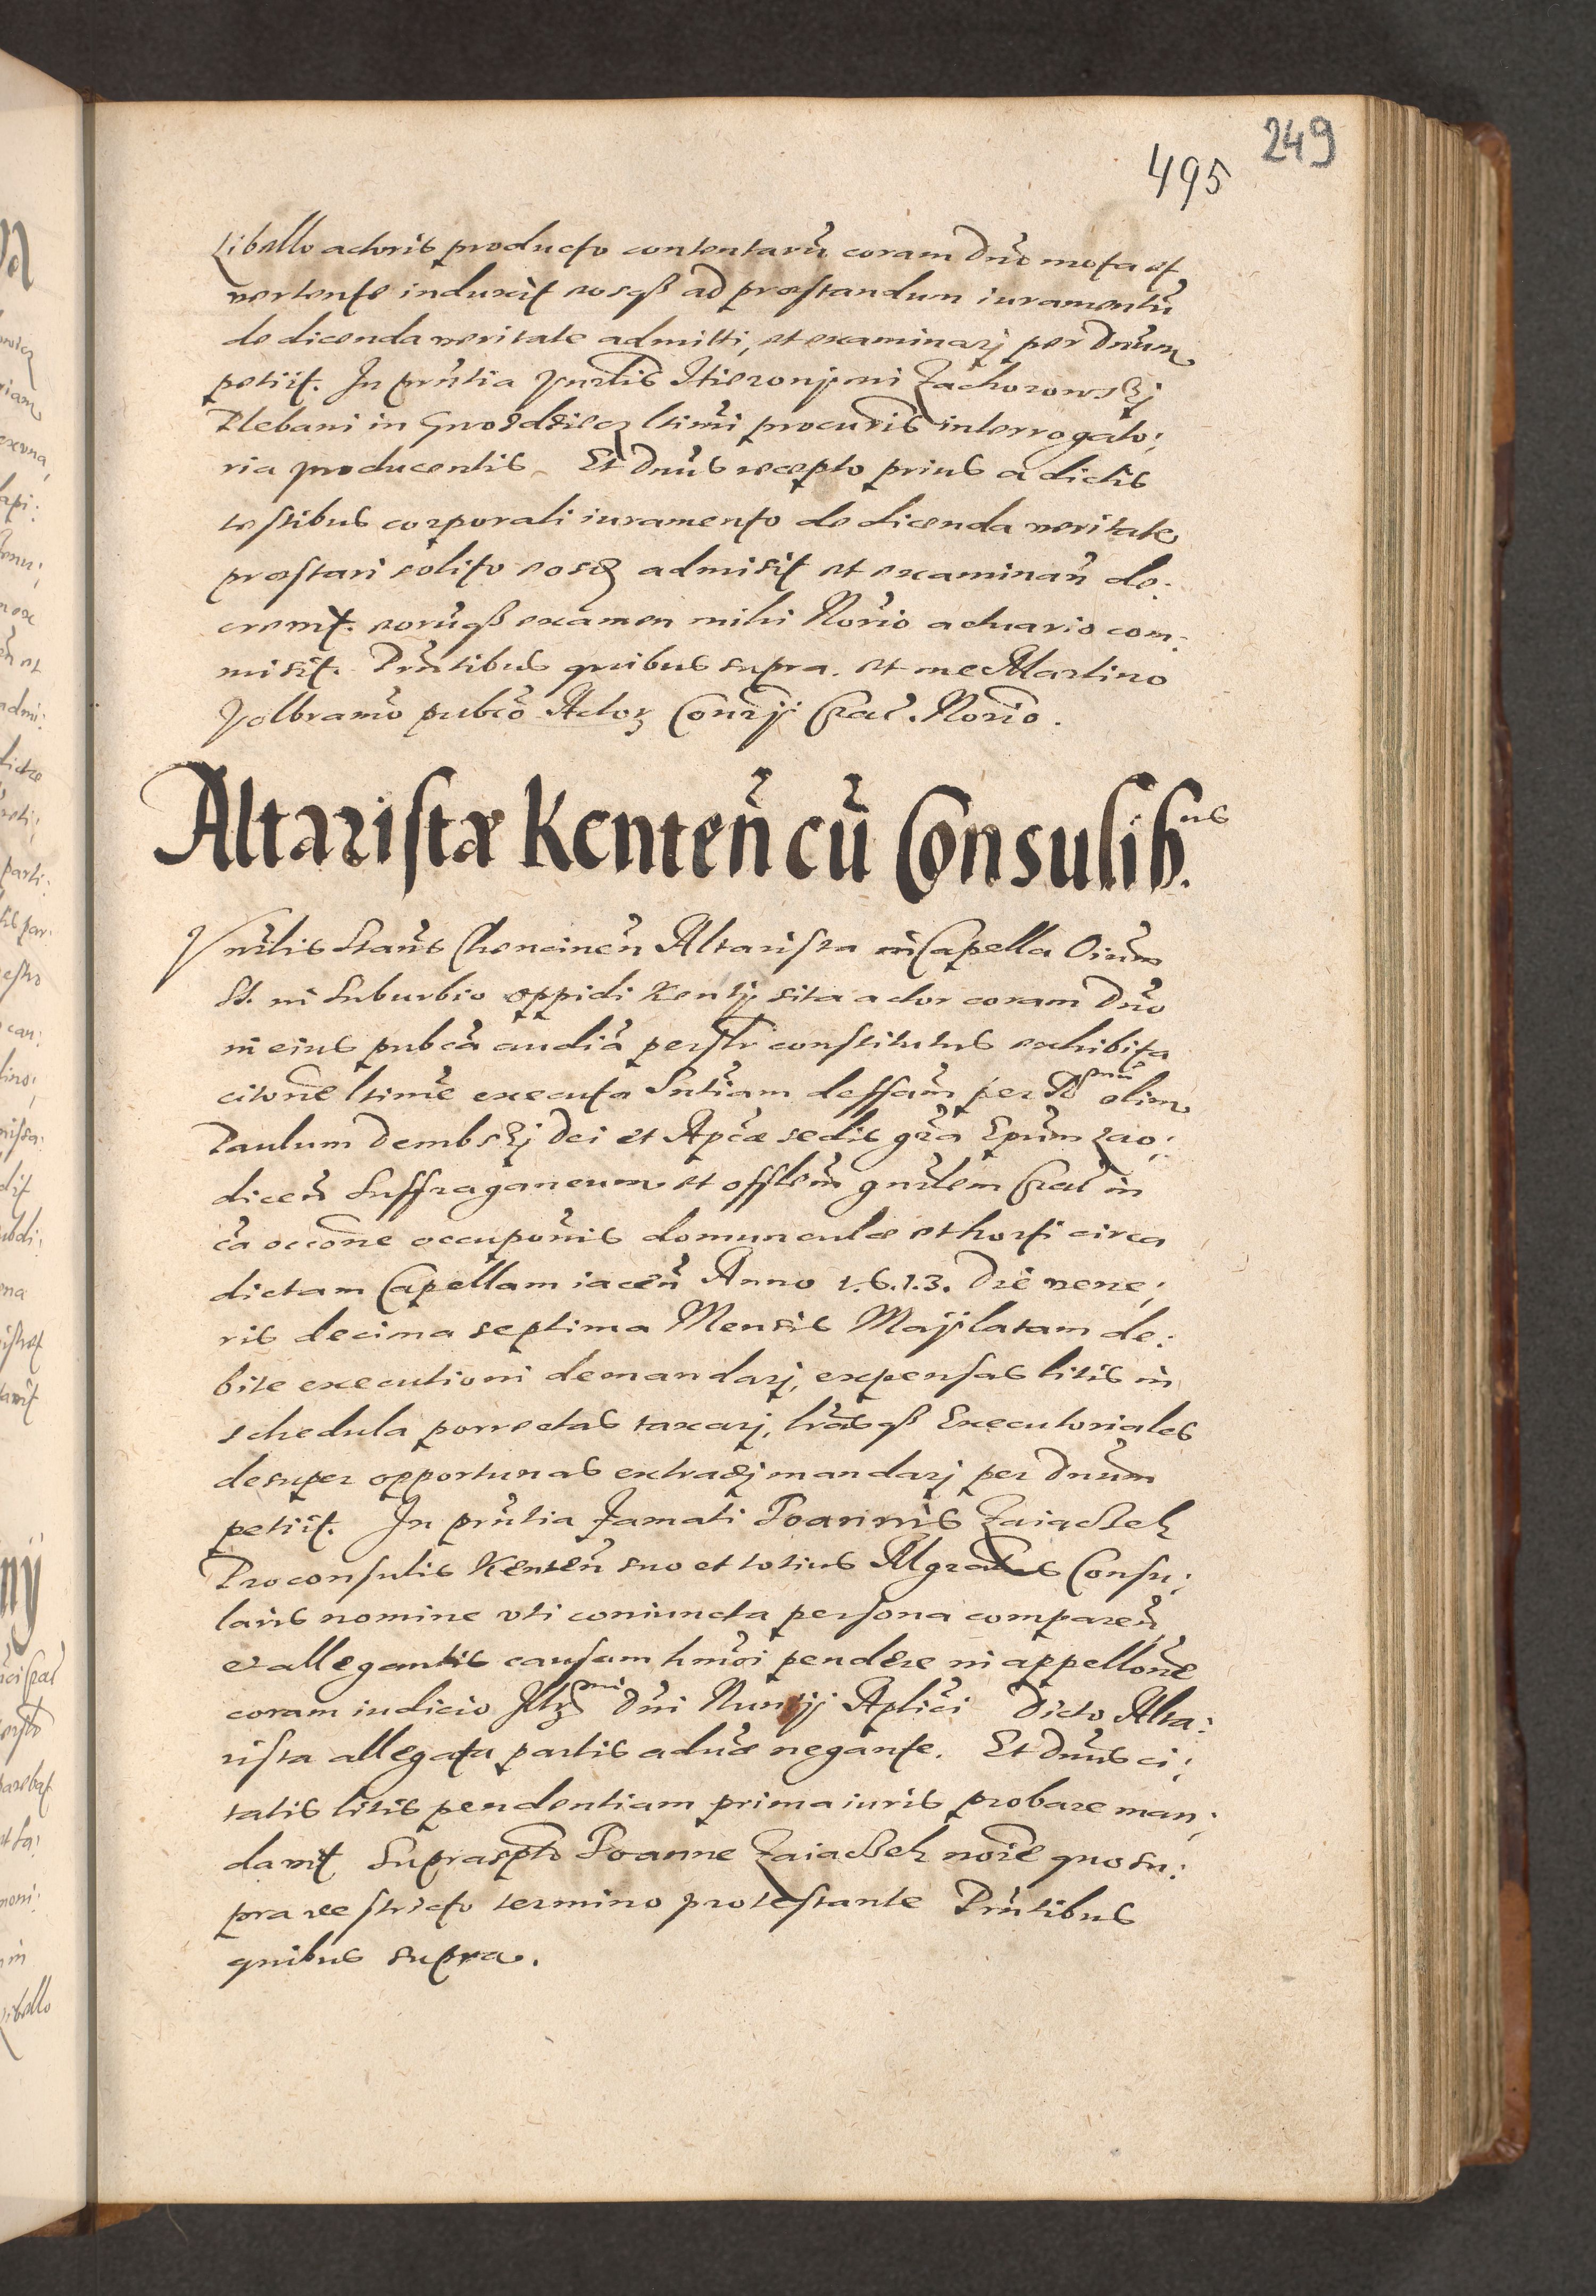 249
495
Libello actoris producto contentarũ coram Dño mota et
vertente induxit eosqß ad præstandum iuramentũ
de dicenda veritate admitti, et examinarj per Dñum
petiit. In pñtia Vnrlis Hieronymi Zachorowskj
Plebani in Gnoʒdʒiecz ltimi procuris interrogato:
ria producentis. Et Dnũs recepto prius a dictis
testibus corporali iuramento de dicenda veritate
præstari solito eosqʒ admisit et examinañ de:
crevit. eorũqß examen mihi Norio actuario com:
misit. Pñtibus quibus supra. et me Martino
Volbramo pubco Actorʒ Conrij Crac̃. Norio.
Altaristæ Kenteñ cũ Consulib.us
Vnrlis Stañs Chencineñ Altarista in Capella Oium
St. in Suburbio oppidi Kentij sita actor coram Dño
in eius pubca audia perstr constitutus exhibita
citone ltime executa Sntiam deffam per Rmũ olim
Paulum Dembskj Dei et Apcæ sedis gra Epum Lao:
diceñ Suffraganeum et offlem gnrlem Crac̃ in
ca occone occuponis domunculæ et horti circa
dictam Capellam iaceñ Anno 1.6.13. Die vene:
ris decima septima Mensis Maij latam de:
bite executioni demandarj, expensas litis in
schedula porrectas taxarj, lrasqß Executoriales
desuper opportunas extradj mandarj per Dñum
petiit. In pñtia Famati Joannis Zaiaczek
Proconsulis Kenteñ suo et totius Mgratus Consu:
laris nomine vti coniuncta persona compareñ
et allegantis causam hmoi pendere in appellone
coram iudicio Illrmi Dni Nuntij Aplici Dicto Alta:
rista allegata partis aduæ negante. Et Dnũs ci:
tatis litis pendentiam prima iuris probare man:
davit Suprascpto Joanne Zaiaczek noie quo su:
pra restricto termino protestante Pñtibus
quibus supra.